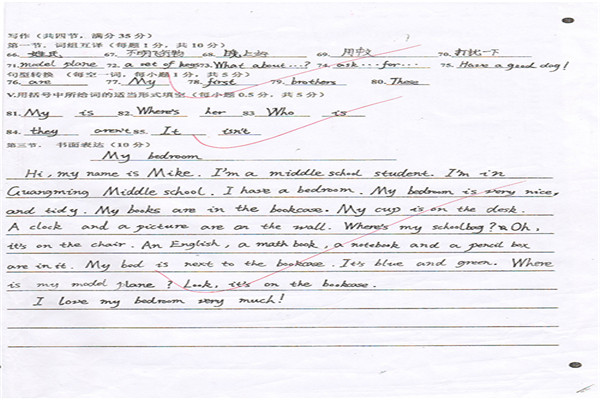 写作(共四节,满分35分)
第一节,词组互译(每题1分,共10分)
66. 姓氏 67. 不明飞行物 68. 晚上好 69. 用中文 70. 打扰一下
71. model plane 72. a set of keys 73. What about...? 74. ask...for... 75. Have a good day!
句型转换 (每空一词,每小题1分,共5分)
76. are 77. My 78. first 79. brothers 80. These
V.用括号中所给词的适当形式填空(每小题0.5分,共5分)
81. My is 82. Where's her 83. Who is
84. they aren't 85. It isn't
第三节. 书面表达(10分)
My bedroom
Hi, my name is Mike. I'm a middle school student. I'm in
Guangming Middle school. I have a bedroom. My bedroom is very nice,
and tidy. My books are in the bookcase. My cup is on the desk.
A clock and a picture are on the wall. Where's my schoolbag? Oh,
it's on the chair. An English, a math book, a notebook and a pencil box
are in it. My bed is next to the bookcase. It's blue and green. Where
is my model plane? Look, it's on the bookcase.
I love my bedroom very much!